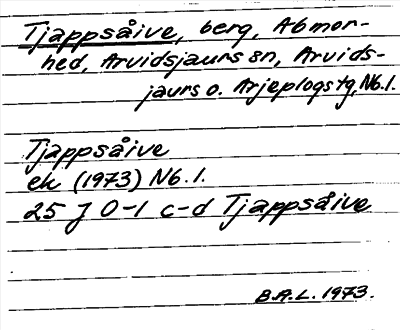 Tjappsåive, berg, Abmor-
hed, Arvidsjaurs sn, Arvids-
jaurs o. Arjeplogs tg, Nb.l.
Tjappsåive
ek (1973) Nb.l.
25 J 0-1 c-d Tjappsåive
B.A.L. 1973.